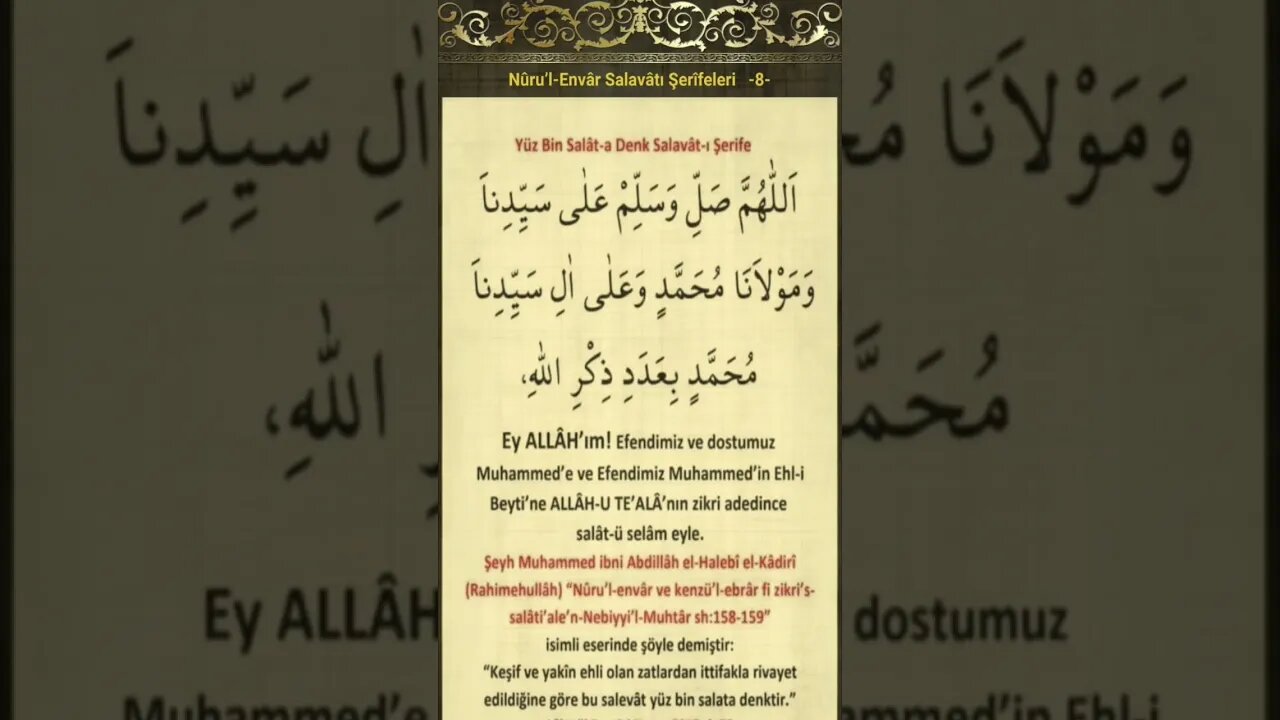 Nûru’l-Envâr Salavâtı Şerîfeleri -8-
Yüz Bin Salât-a Denk Salavât-ı Şerife
اَللّٰهُمَّ صَلِّ وَسَلِّمْ عَلٰى سَيِّدِناَ
وَمَوْلاَنَا مُحَمَّدٍ وَعَلٰى اٰلِ سَيِّدِناَ
مُحَمَّدٍ بِعَدَدِ ذِكْرِ اللّٰهِ،
Ey ALLÂH’ım! Efendimiz ve dostumuz
Muhammed’e ve Efendimiz Muhammed’in Ehl-i
Beyti’ne ALLÂH-U TE’ALÂ’nın zikri adedince
salât-ü selâm eyle.
Şeyh Muhammed ibni Abdillâh el-Halebî el-Kâdirî
(Rahimehullâh) “Nûru’l-envâr ve kenzü’l-ebrâr fi zikri’s-
salâti’ale’n-Nebiyyi’l-Muhtâr sh:158-159”
isimli eserinde şöyle demiştir:
“Keşif ve yakîn ehli olan zatlardan ittifakla rivayet
edildiğine göre bu salevât yüz bin salata denktir.”